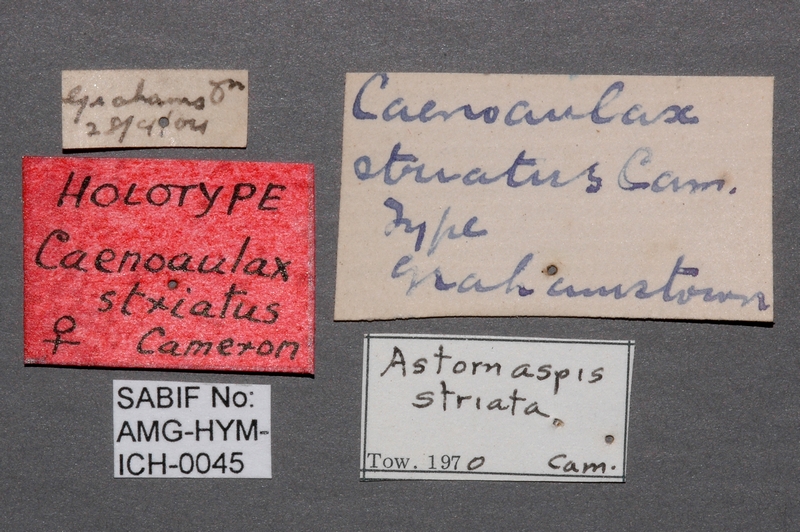 Grahamstn
28/9/04
HOLOTYPE
Caenoaulax
striatus
♀ Cameron
SABIF No:
AMG-HYM-
ICH-0045
Caenoaulax
striatus Cam.
Type
Grahamstown
Astomaspis
striata
Tow. 1970 Cam.